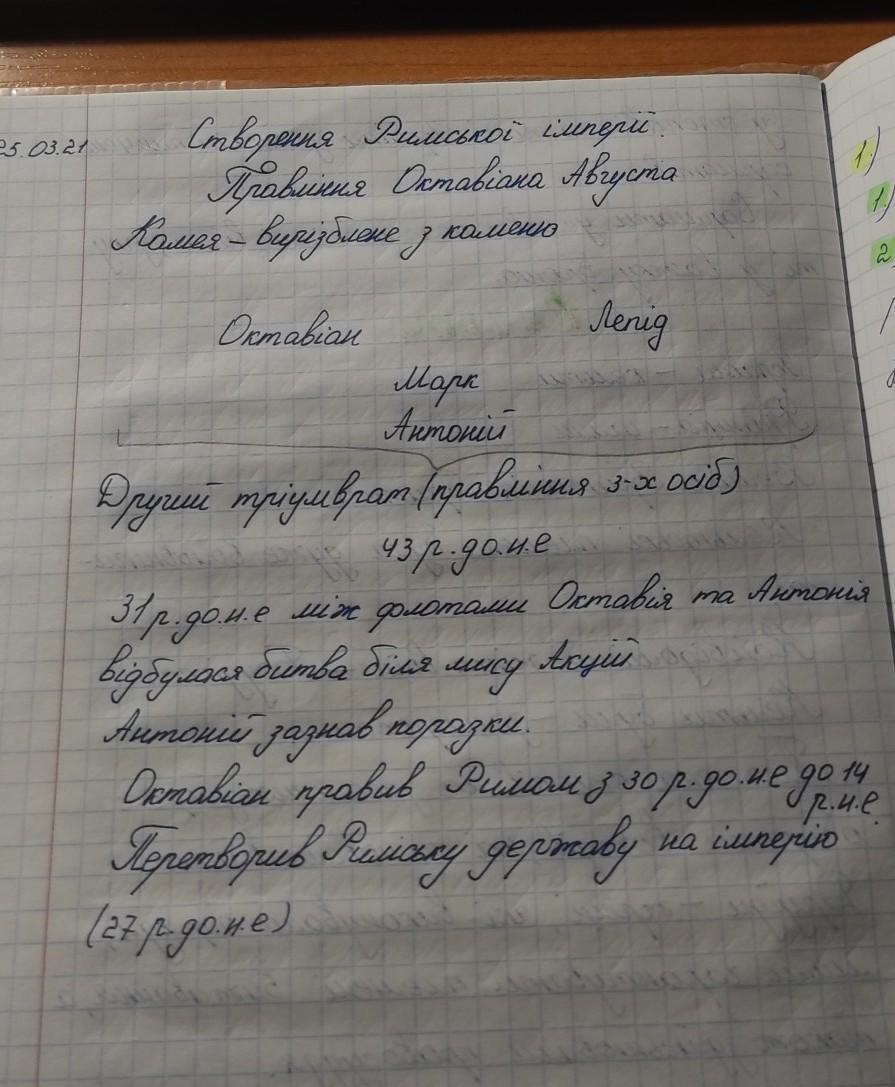 25.03.21
Створення Римської імперії.
Правління Октавіана Августа
Камея – вирізблене з каменю
Октавіан Лепід
Марк
Антоній
Другий тріумврат (правління 3-х осіб)
43 р. до. н. е
31 р. до. н. е між флотами Октавія та Антонія
відбулася битва біля мису Акцій
Антоній зазнав поразки.
Октавіан правив Римом з 30 р. до. н. е до 14
р. н. е.
Перетворив Римську державу на імперію
(27 р. до. н. е)
1.)
1.)
2